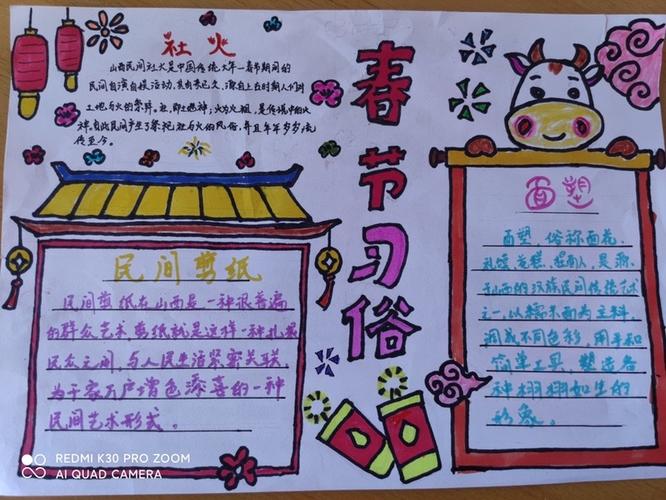 社火
山西民间社火是中国传统大年一春节期间的
民间自演自娱活动,其由来已久,源自上古时期人们对
土地与火的崇拜。社,即土地神;火为火祖,是传说中的火
神,自此民间产生了祭祀社与火的风俗,并且年年岁岁流
传至今。
春节习俗
民间剪纸
民间剪纸在山西是一种很普遍
的群众艺术,剪纸就是这样一种扎根
民众之间,与人民生活紧密关联,
为千家万户增色添喜的一种
民间艺术形式。
面塑
面塑,俗称面花、
礼馍、花糕、捏面人,是源
于山西的汉族民间传统艺术
之一,以糯米面为主料,
调成不同色彩,用手和
简单工具,塑造各
种栩栩如生的
形象。
REDMI K30 PRO ZOOM
AI QUAD CAMERA